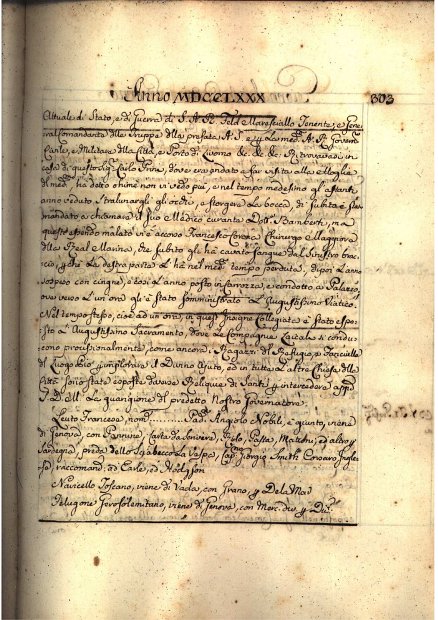 Anno MDCCLXXX 303
Attuale di Stato, e di Guerra di S. A. R. Feld Maresciallo Tenente, e Gene
ral Comandante alle Truppe della prefata A. S. e p. la med.ª A. R. Govern
Civile, e Militare della Città, e Porto di Livorno &c. &c. &c. Ritrovavasi in
casa di questo Sig. Carlo Prini, dove era andato a far visita alla Moglie
del med.º ha detto ohimè non vi vedo più, e nel tempo medesimo gli astanti
anno veduto stralunargli gli occhi, e storgere la bocca, di subito è stat
mandato a chiamare il suo Medico curante Dott. Bamberth, ma
questo essendo malato vi è accorso Francesco Chirurgo Maggiore
della Real Marina, che subito gli ha cavato sangue dal sinistro brac-
cio, p. che la destra parte l'ha nel med. tempo perduta, di poi l'anno
sospeso con cingne, e così l'anno posto in Carrozza, e condotto a Palazzo
ove verso l'un'ora gli è stato somministrato l'Augustissimo Viatico.
Nel tempo stesso, cioè ad un'ora, in quest'Insigne Collegiata è stato espo-
sto l'Augustissimo Sacramento, dove le Compagnie Laicali si condu-
cono provisionalmente, come ancora i Ragazzi del Refugio, e Fanciulle
del Luogo Pio p. implorare il Divino Ajuto, ed in tutte le altre Chiese della
Città sono state esposte diverse Reliquie di Santi p. intercedere app.
la guarigione del predetto Nostro Governatore.
Leuto Francese, nom. Pad. Angiolo Nobili, e giunto, viene
di Genova con Pannine, Carta da scrivere, Pasta, Mattoni, ed altro p.
Sardegna, preda dello Sciabecco la Vespa, Cap. Giorgio Smith Corsaro Ingle-
se, raccomand. a Earle, ed Hodgson
Navicello Toscano, viene di Vada, con Grano, p. De la Ma
Pelugone Gerosolimitano, viene di Genova, con Merc. div. p. Div.